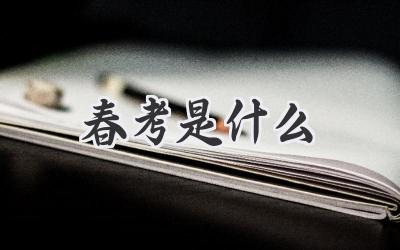 春考是什么